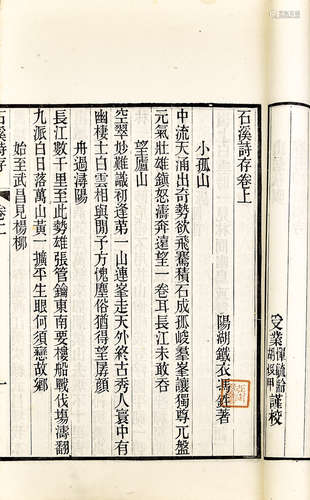 受業惲毓齡謹校
石溪詩存卷上
陽湖鐵衣馮 著
小孤山
中流天涌出奇勢欲飛驚積石成孤岐羣峯讓獨尊兀盤
元氣壯雄鎮怒濤奔遠望一卷耳長江未敢吞
望廬山
空翠妙難識初逢第一山連峯走天外終古秀人寰中有
幽棲士白雲相與閒予方愧塵俗猶得望孱顏
舟過潯陽
長江數千里至此勢雄張管鑰東南要樓船戰伐塲濤翻
九派白日落萬山黃一擴平生眼何須戀故鄉
始至武昌見楊柳
石溪詩存 卷上 一